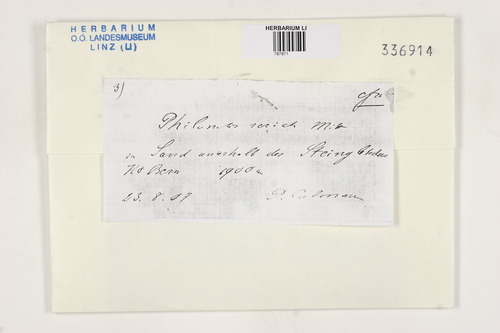 HERBARIUM
O.O. LANDESMUSEUM
LINZ (LI)
HERBARIUM LI
787871
336914
3)
cfr
Philonotis seriata Mitt
in Sand unterhalb des
Kt Bern 1900 m
23. 8. 07